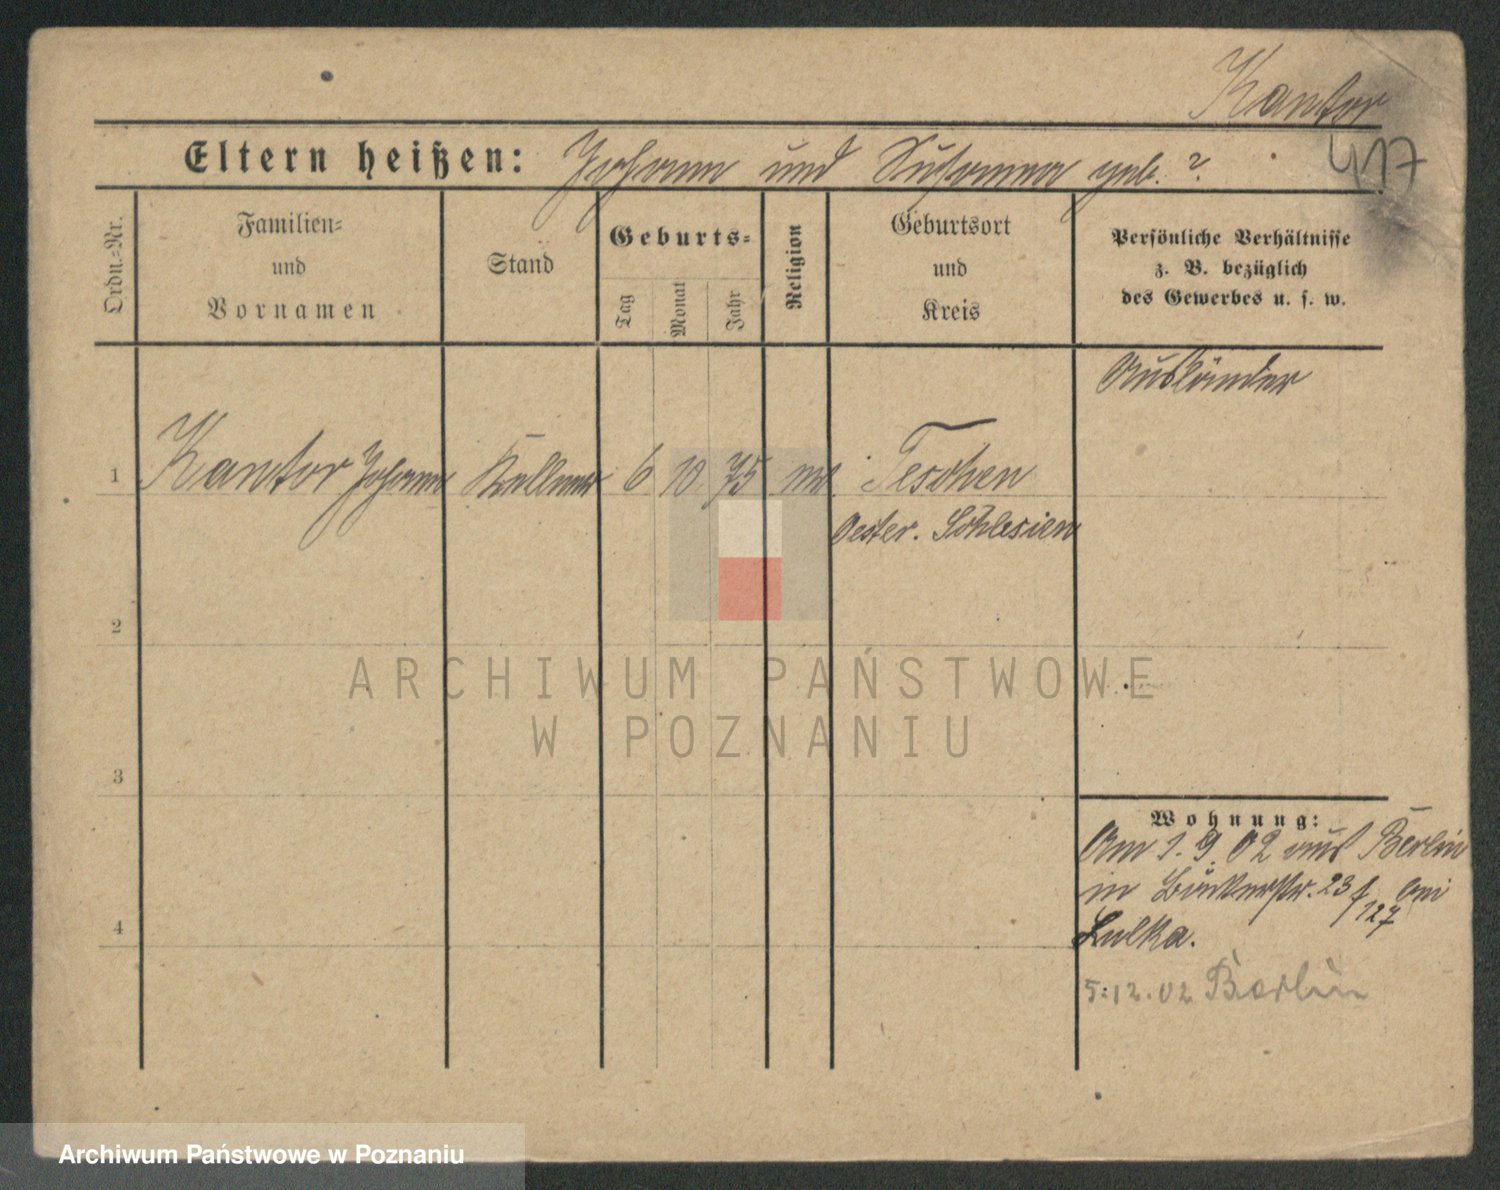 Kantor
417
Eltern heißen: Johann und Susanna geb. ?
Ordn.=Nr.
Familien=
und
Vornamen
Stand
Geburts=
Tag
Monat
Jahr
Religion
Geburtsort
und
Kreis
Persönliche Verhältnisse
z. B. bezüglich
des Gewerbes u. s. w.
Ausländer
1 Kantor Johann Kellner 6 10 75 Teschen
Oester. Schlesien
2
3
4
Wohnung:
Am 1. 9. 02 aus Berlin
in Bäckerstr. 23 bei
127
Lulka.
5.12.02 Berlin
ARCHIWUM PAŃSTWOWE
W POZNANIU
Archiwum Państwowe w Poznaniu